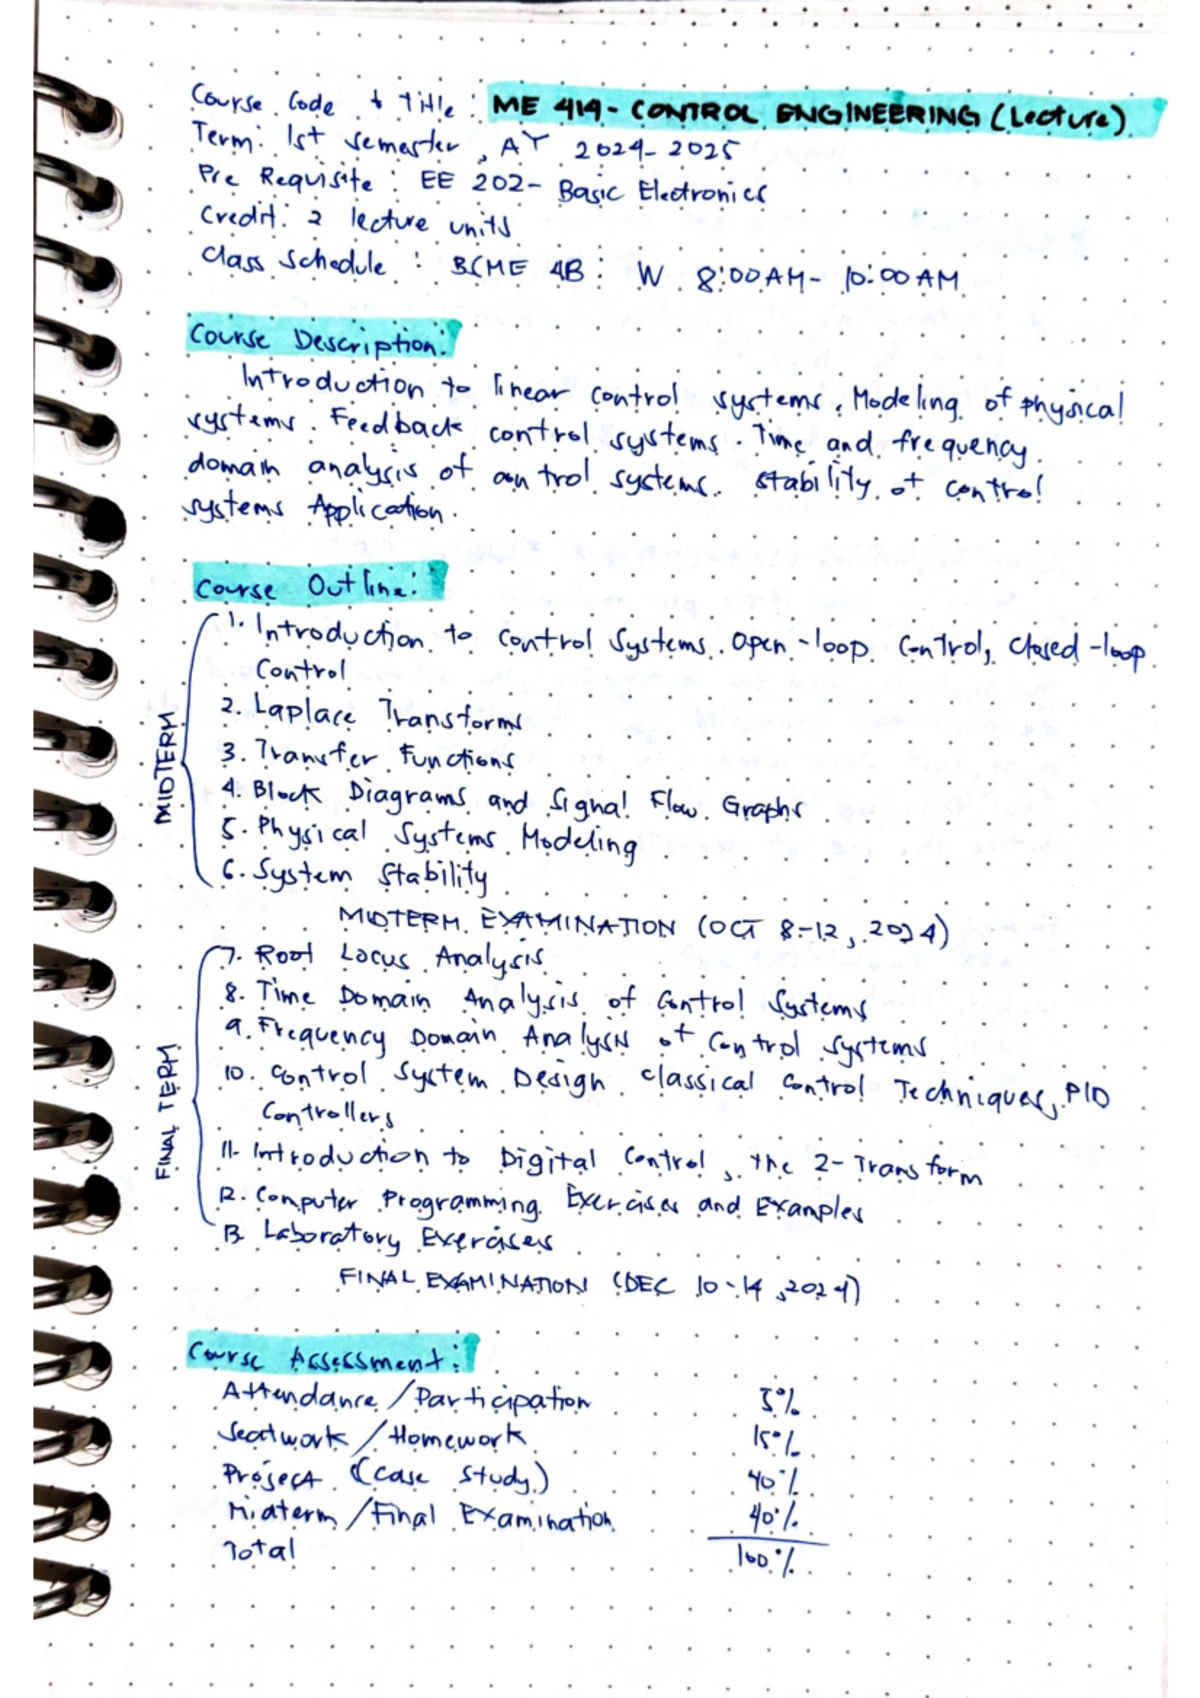 Course Code & Title : ME 414 - CONTROL ENGINEERING (Lecture)
Term: 1st semester, AY 2024-2025
Pre Requisite : EE 202- Basic Electronics
Credit: 2 lecture units
Class Schedule : BSME 4B : W 8:00 AM - 10:00 AM
Course Description:
Introduction to linear control systems. Modeling of physical
systems. Feedback control systems. Time and frequency
domain analysis of control systems. stability of control
systems Application.
Course Outline:
MIDTERM
1. Introduction to Control Systems. Open-loop Control, Closed-loop
Control
2. Laplace Transforms
3. Transfer Functions
4. Block Diagrams and Signal Flow Graphs
5. Physical Systems Modeling
6. System Stability
MIDTERM EXAMINATION (OCT 8-12, 2024)
FINAL TERM
7. Root Locus Analysis
8. Time Domain Analysis of Control Systems
9. Frequency Domain Analysis of Control Systems
10. Control System Design Classical Control Techniques, PID
Controllers
11. Introduction to Digital Control, the Z-Transform
12. Computer Programming Exercises and Examples
13. Laboratory Exercises
FINAL EXAMINATION (DEC 10-14, 2024)
Course Assessment:
Attendance/Participation 5%
Seatwork/Homework 15%
Project (Case Study) 40%
Midterm/Final Examination 40%
Total 100%